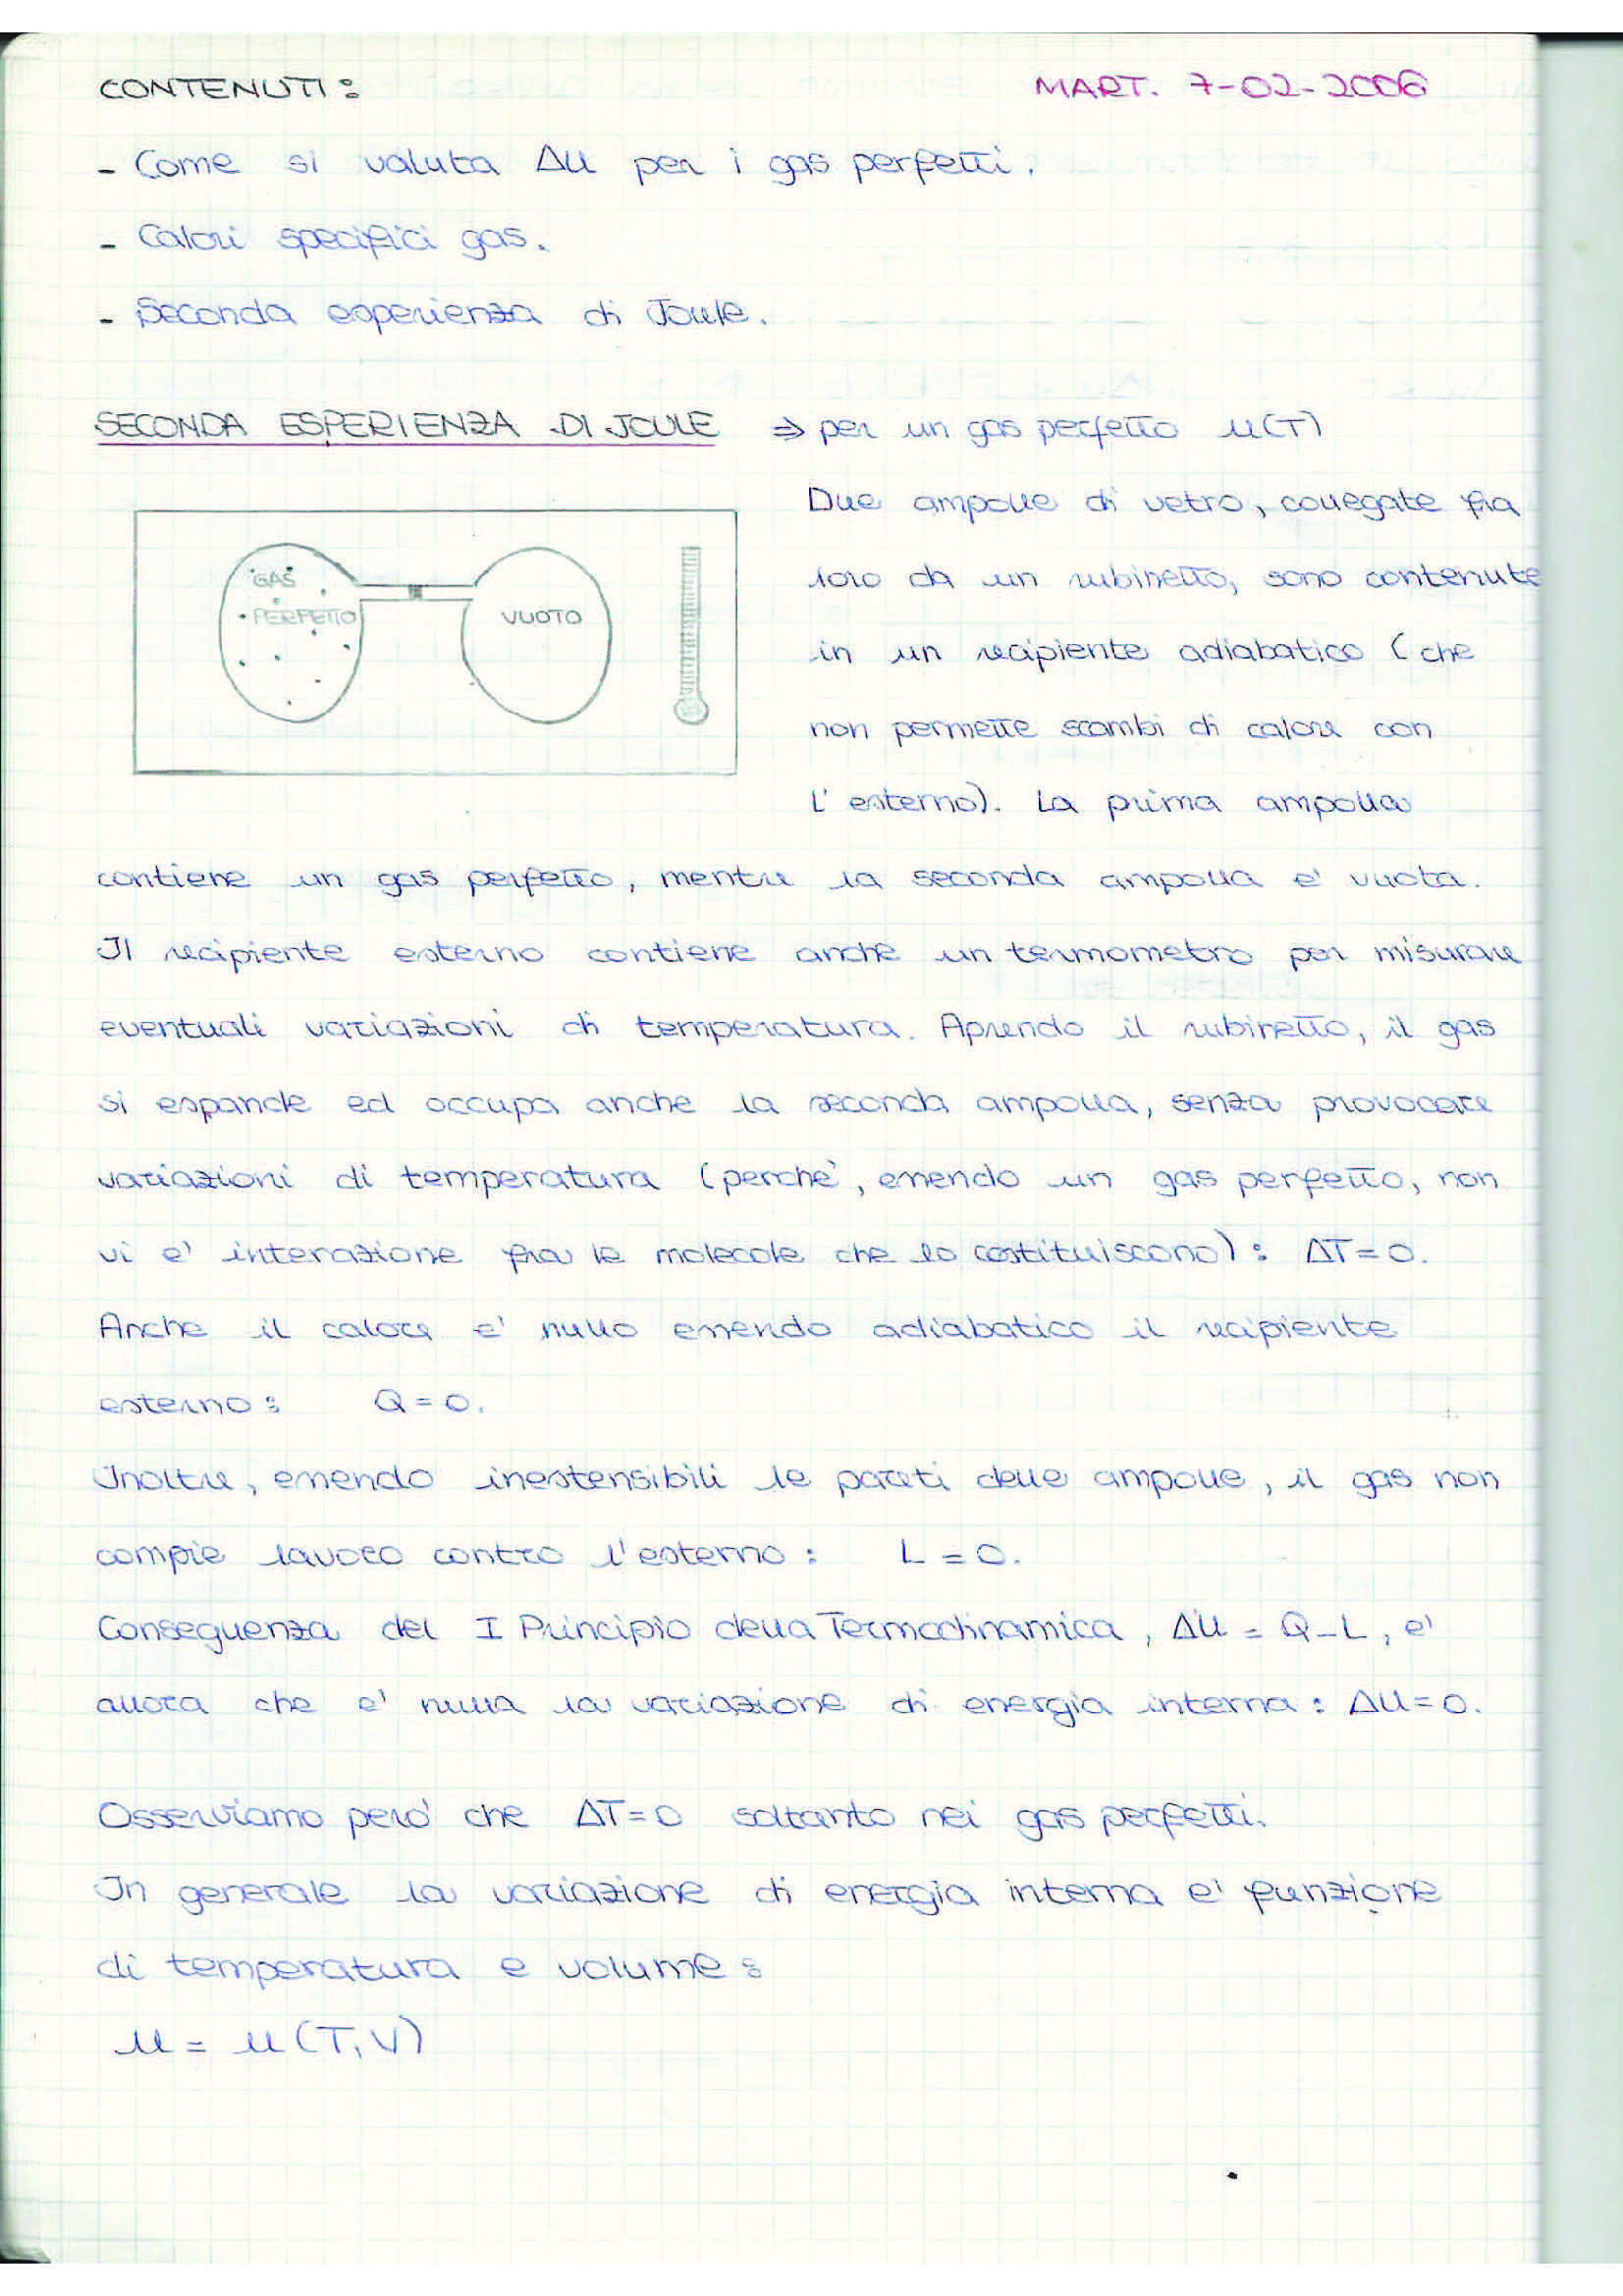 CONTENUTI:
MART. 7-02-2006
- Come si valuta ΔU per i gas perfetti.
- Calori specifici gas.
- Seconda esperienza di Joule.
SECONDA ESPERIENZA DI JOULE ⇒ per un gas perfetto u(T)
GAS
PERFETTO
VUOTO
Due ampolle di vetro, collegate fra
loro da un rubinetto, sono contenute
in un recipiente adiabatico (che
non permette scambi di calore con
l'esterno). La prima ampolla
contiene un gas perfetto, mentre la seconda ampolla e' vuota.
Il recipiente esterno contiene anche un termometro per misurare
eventuali variazioni di temperatura. Aprendo il rubinetto, il gas
si espande ed occupa anche la seconda ampolla, senza provocare
variazioni di temperatura (perche', essendo un gas perfetto, non
vi e' interazione fra le molecole che lo costituiscono): ΔT=0.
Anche il calore e' nullo essendo adiabatico il recipiente
esterno: Q=0.
Inoltre, essendo inestensibili le pareti delle ampolle, il gas non
compie lavoro contro l'esterno: L=0.
Conseguenza del I Principio della Termodinamica, ΔU = Q-L, e'
allora che e' nulla la variazione di energia interna: ΔU=0.
Osserviamo pero' che ΔT=0 soltanto nei gas perfetti.
In generale la variazione di energia interna e' funzione
di temperatura e volume:
u = u(T,V)